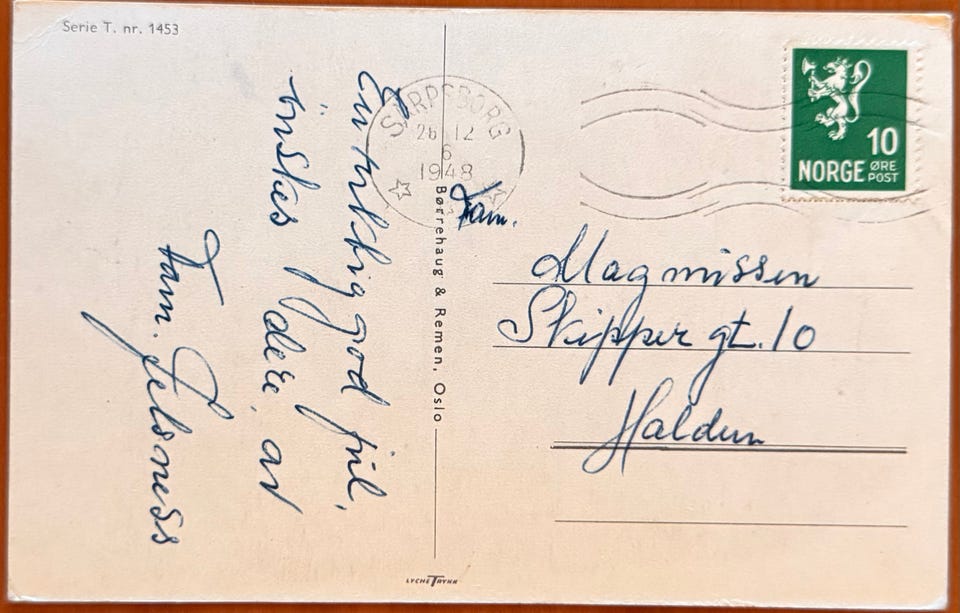 Serie T. nr. 1453
En riktig god jul,
önskes dere, av
Fam.
SARPSBORG
26 12
6
1948
Børrehaug & Remen, Oslo
10
NORGE ØRE
POST
Fam.
Magnussen
Skipper gt. 10
Halden
LYCHE TRYKK